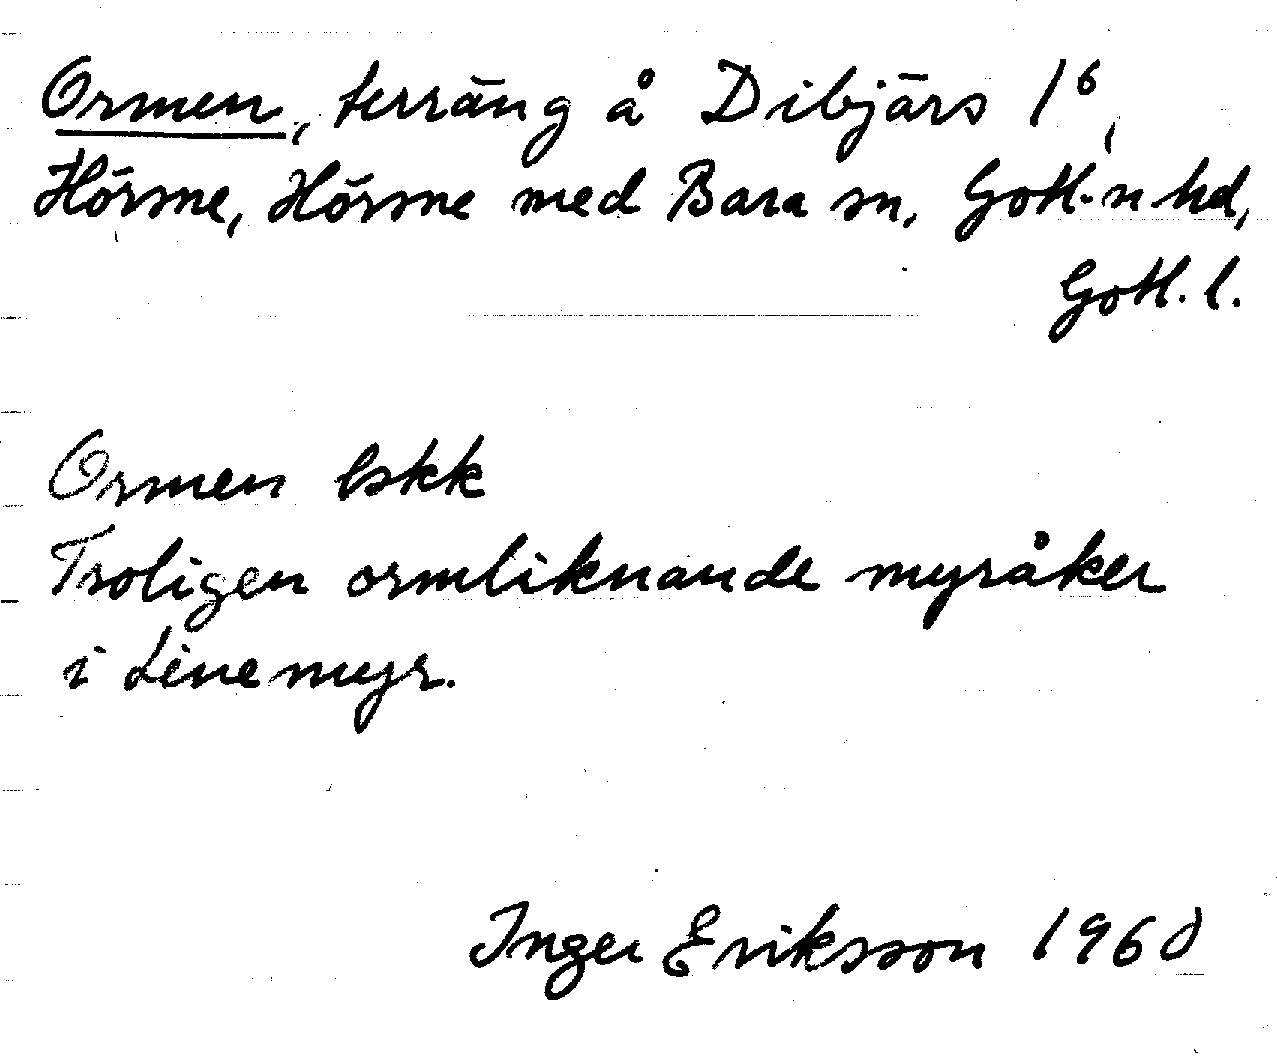 Ormen, terräng å Dibjärs 1⁶,
Hörsne, Hörsne med Bara sn, Gotl. n hd,
Gotl. l.
Ormen Eskk
Troligen ormliknande myråker
i Linemyr.
Inger Eriksson 1960